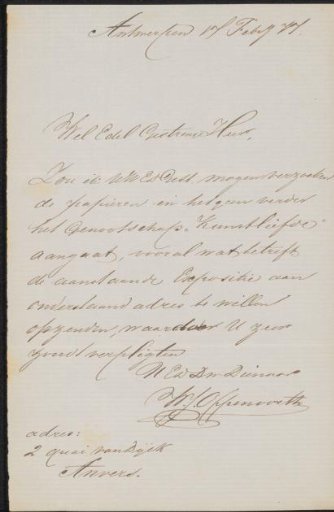 Antwerpen 17 Febry 77.
Wel Edel Gestrenge Heer,
Zou ik UW Ed Gest. mogen verzoeken
de papieren en hetgeen verder
het Genootschap "Kunstliefde"
aangaat, vooral wat betreft
de aanstaande Expositie aan
onderstaand adres te willen
opzenden, waardoor U zeer
zoudt verpligten
U Ed Dw Dienaar
W. J. Oppenoorth
adres:
2 quai van Dijck
Anvers.